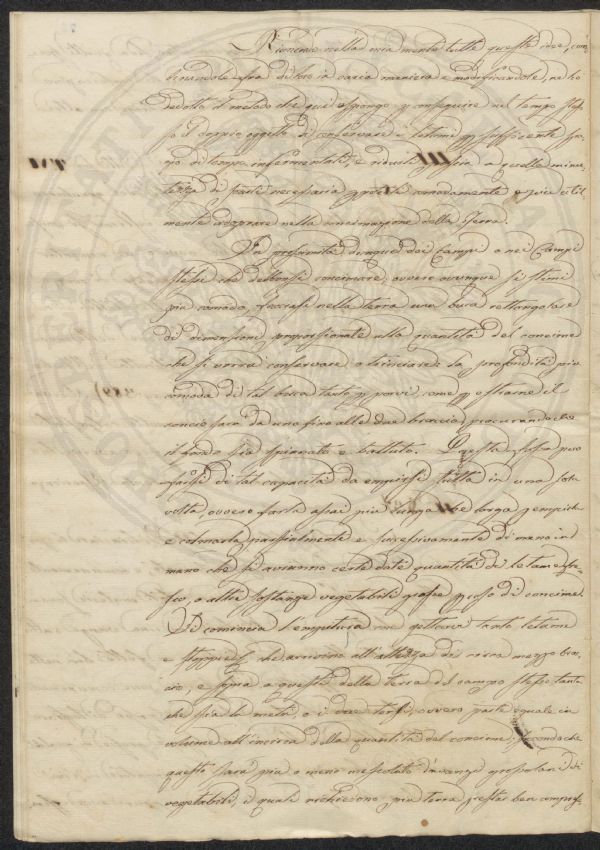 Riunendo nella mia mente tutte queste idee, com
binandole fra di loro in varia maniera e modificandole, ne ho
dedotto il metodo che qui espongo p conseguire nel tempo stes
so il doppio oggetto di conservare i letami p sufficiente spa
zio di tempo infermentati, e ridurli a quella minu
tezza di parti necessaria p potersi comodamente e facil
mente adoprare nella concimazione della Terra.
In prossimità dunque dei Campi o nei Campi
stessi che debbonsi concimare, ovvero ovunque si stimi
più comodo, facciasi nella terra una buca rettangolare
di dimensioni proporzionate alla quantità del concime
che si vorrà conservare o trinciare: la profondità più
comoda di tal buca tanto p porvi come p estrarne il
concio sarà da uno fino alle due braccia, procurando che
il fondo sia spianato e battuto. Questa fossa può
farsi di tal capacità da empirsi tutta in una sola
volta, ovvero farla assai più lunga che larga p empirla
e colmarla parzialmente e successivamente di mano in
mano che si avranno certe date quantità di letame fre
sco, o altre sostanze vegetabili p uso di concime.
Si comincia l'empitura con gettarvi tanto letame
e che arrivino all'altezza di circa mezzo brac
cio, e sopra a questi della terra del campo stesso tanta
che sia la metà, o i due terzi, ovvero parte eguale in
volume all'incirca della quantità del concime, secondo che
questo sarà più o meno mescolato d'avanzi grossolani di
vegetabili, i quali richiedono più terra